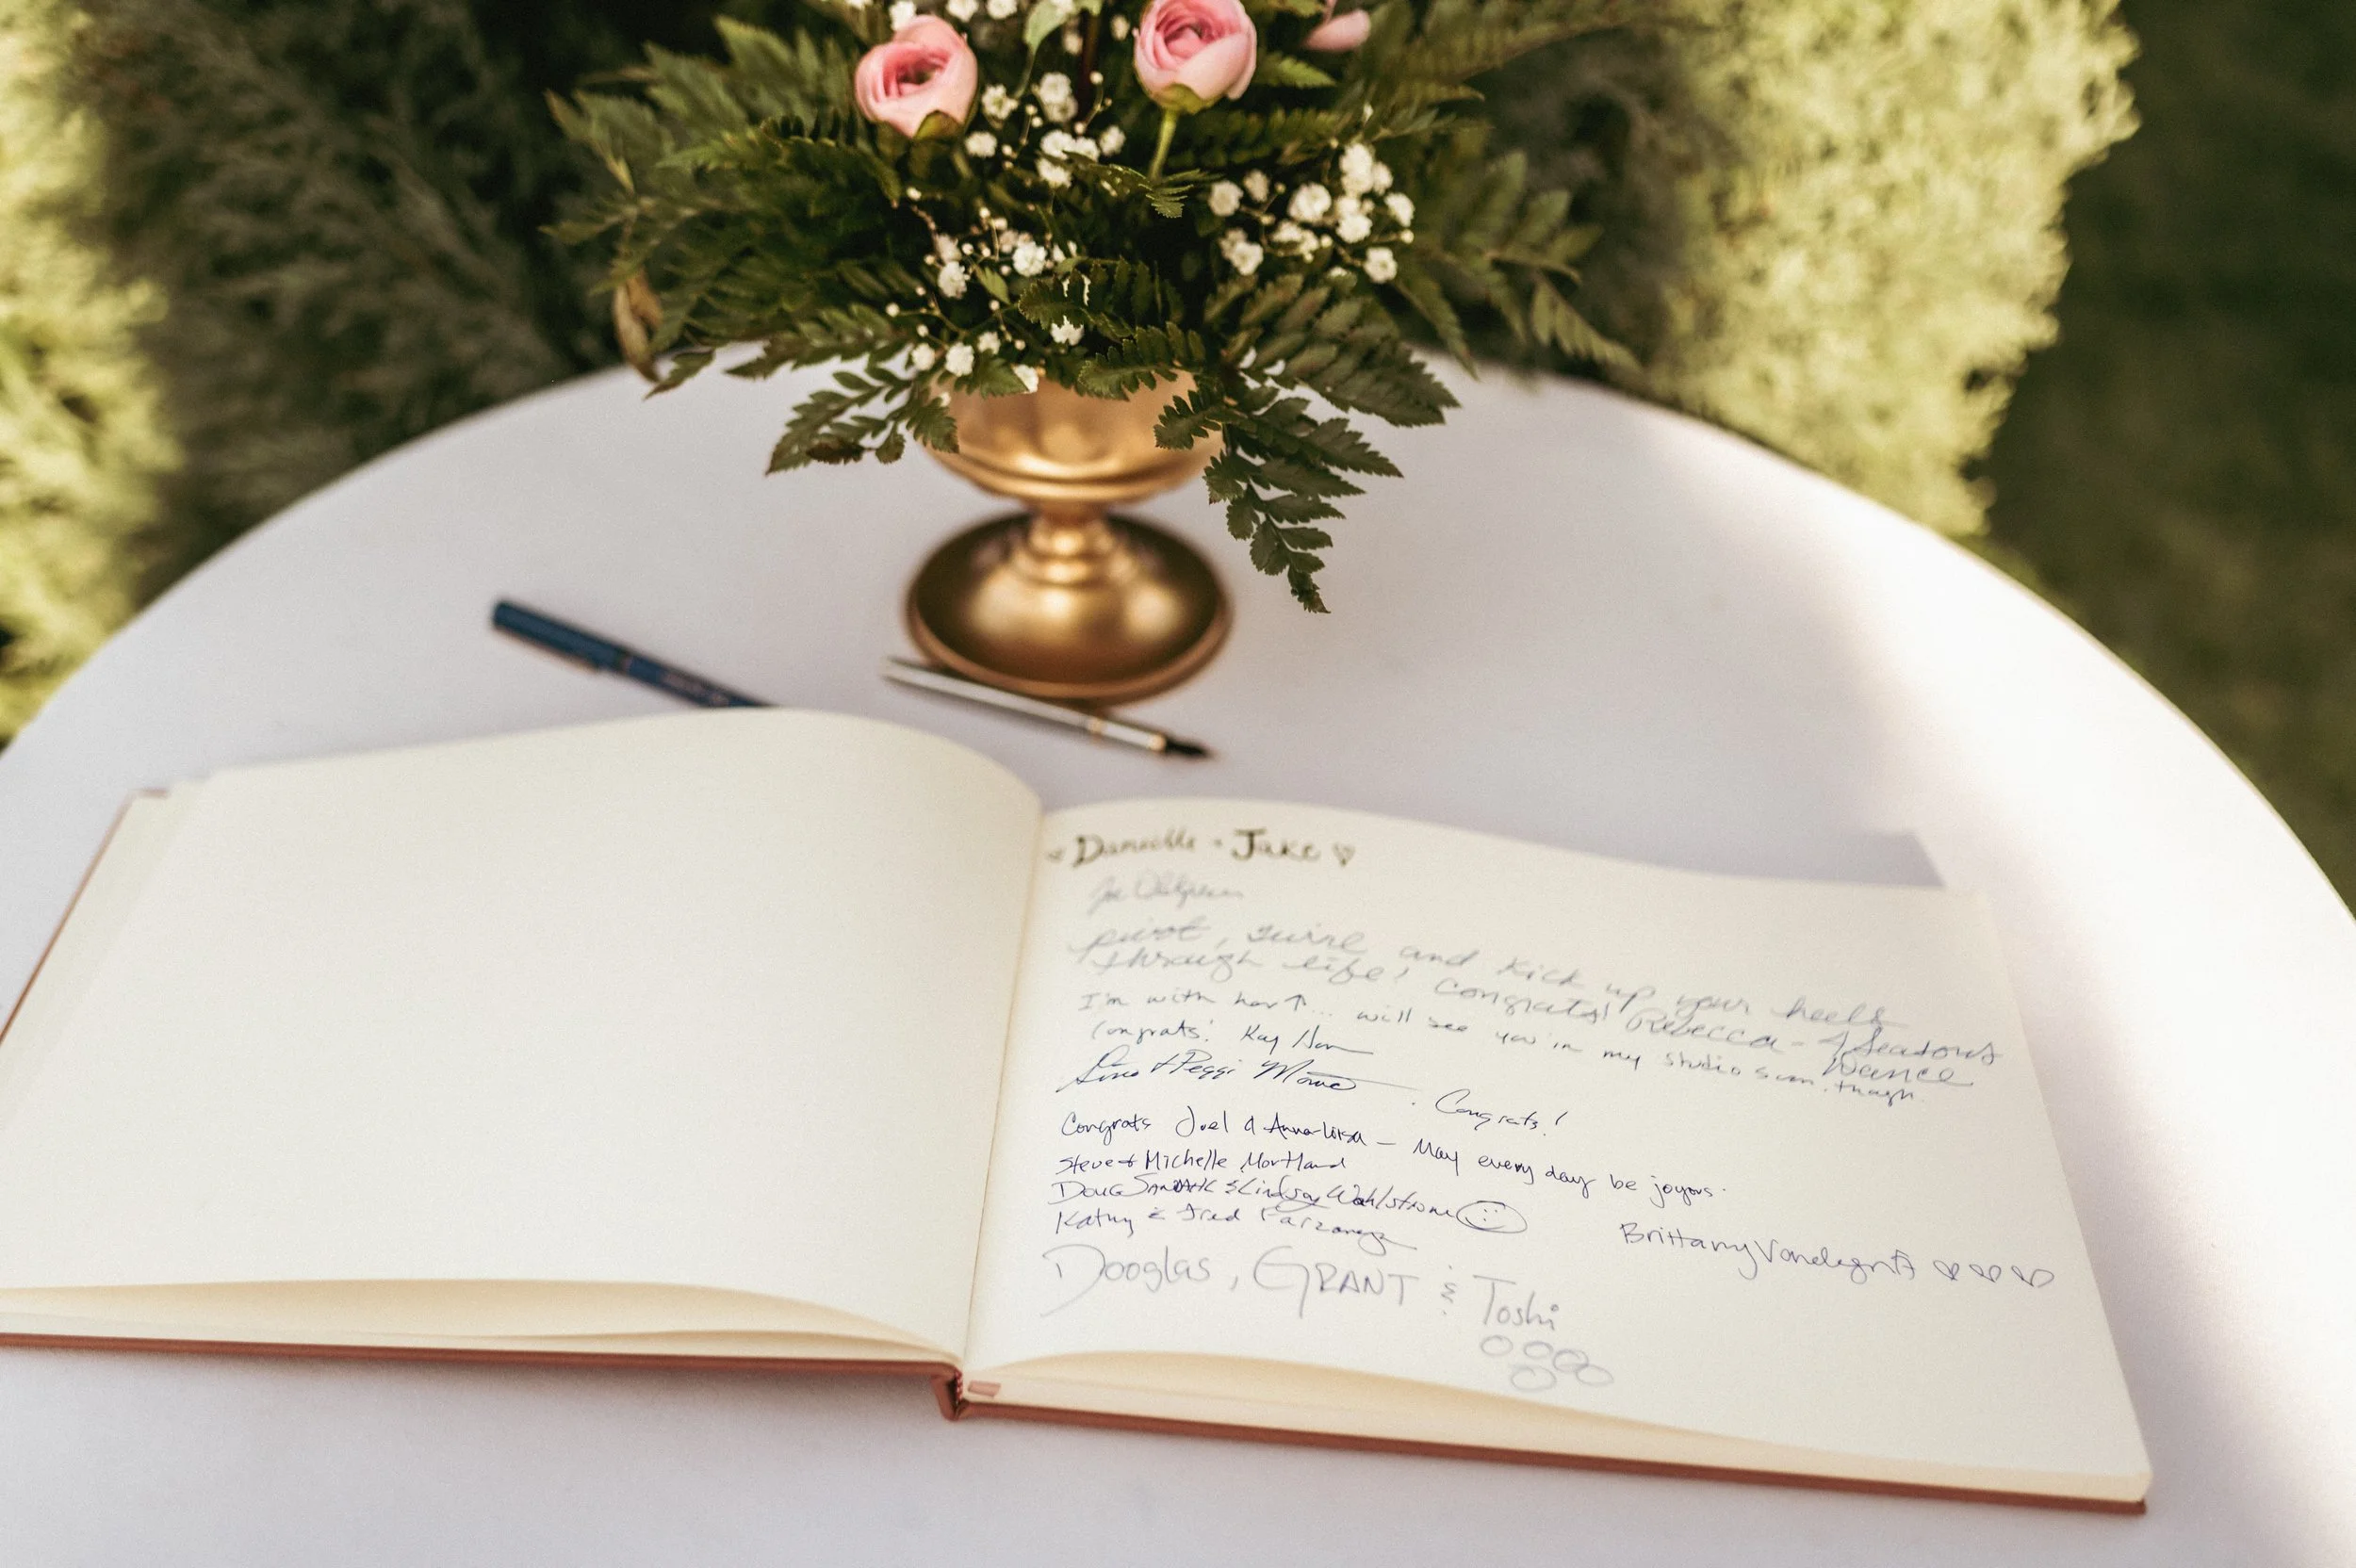 Danielle + Jake ♡
Joe
pivot, swirl and kick up your heels
through life! Congrats! Rebecca - 4 Seasons
Dance
I'm with her ↑... will see you in my studio soon. though.
Congrats! Kay
& Peggi
Congrats!
Congrats Joel & Anna-Lisa — May every day be joyous.
Steve & Michelle Mortland
Doug & Lindsay Wahlstrom
Kathy & Fred
Brittany Vandegrift ♡♡♡
Douglas, GRANT & Toshi